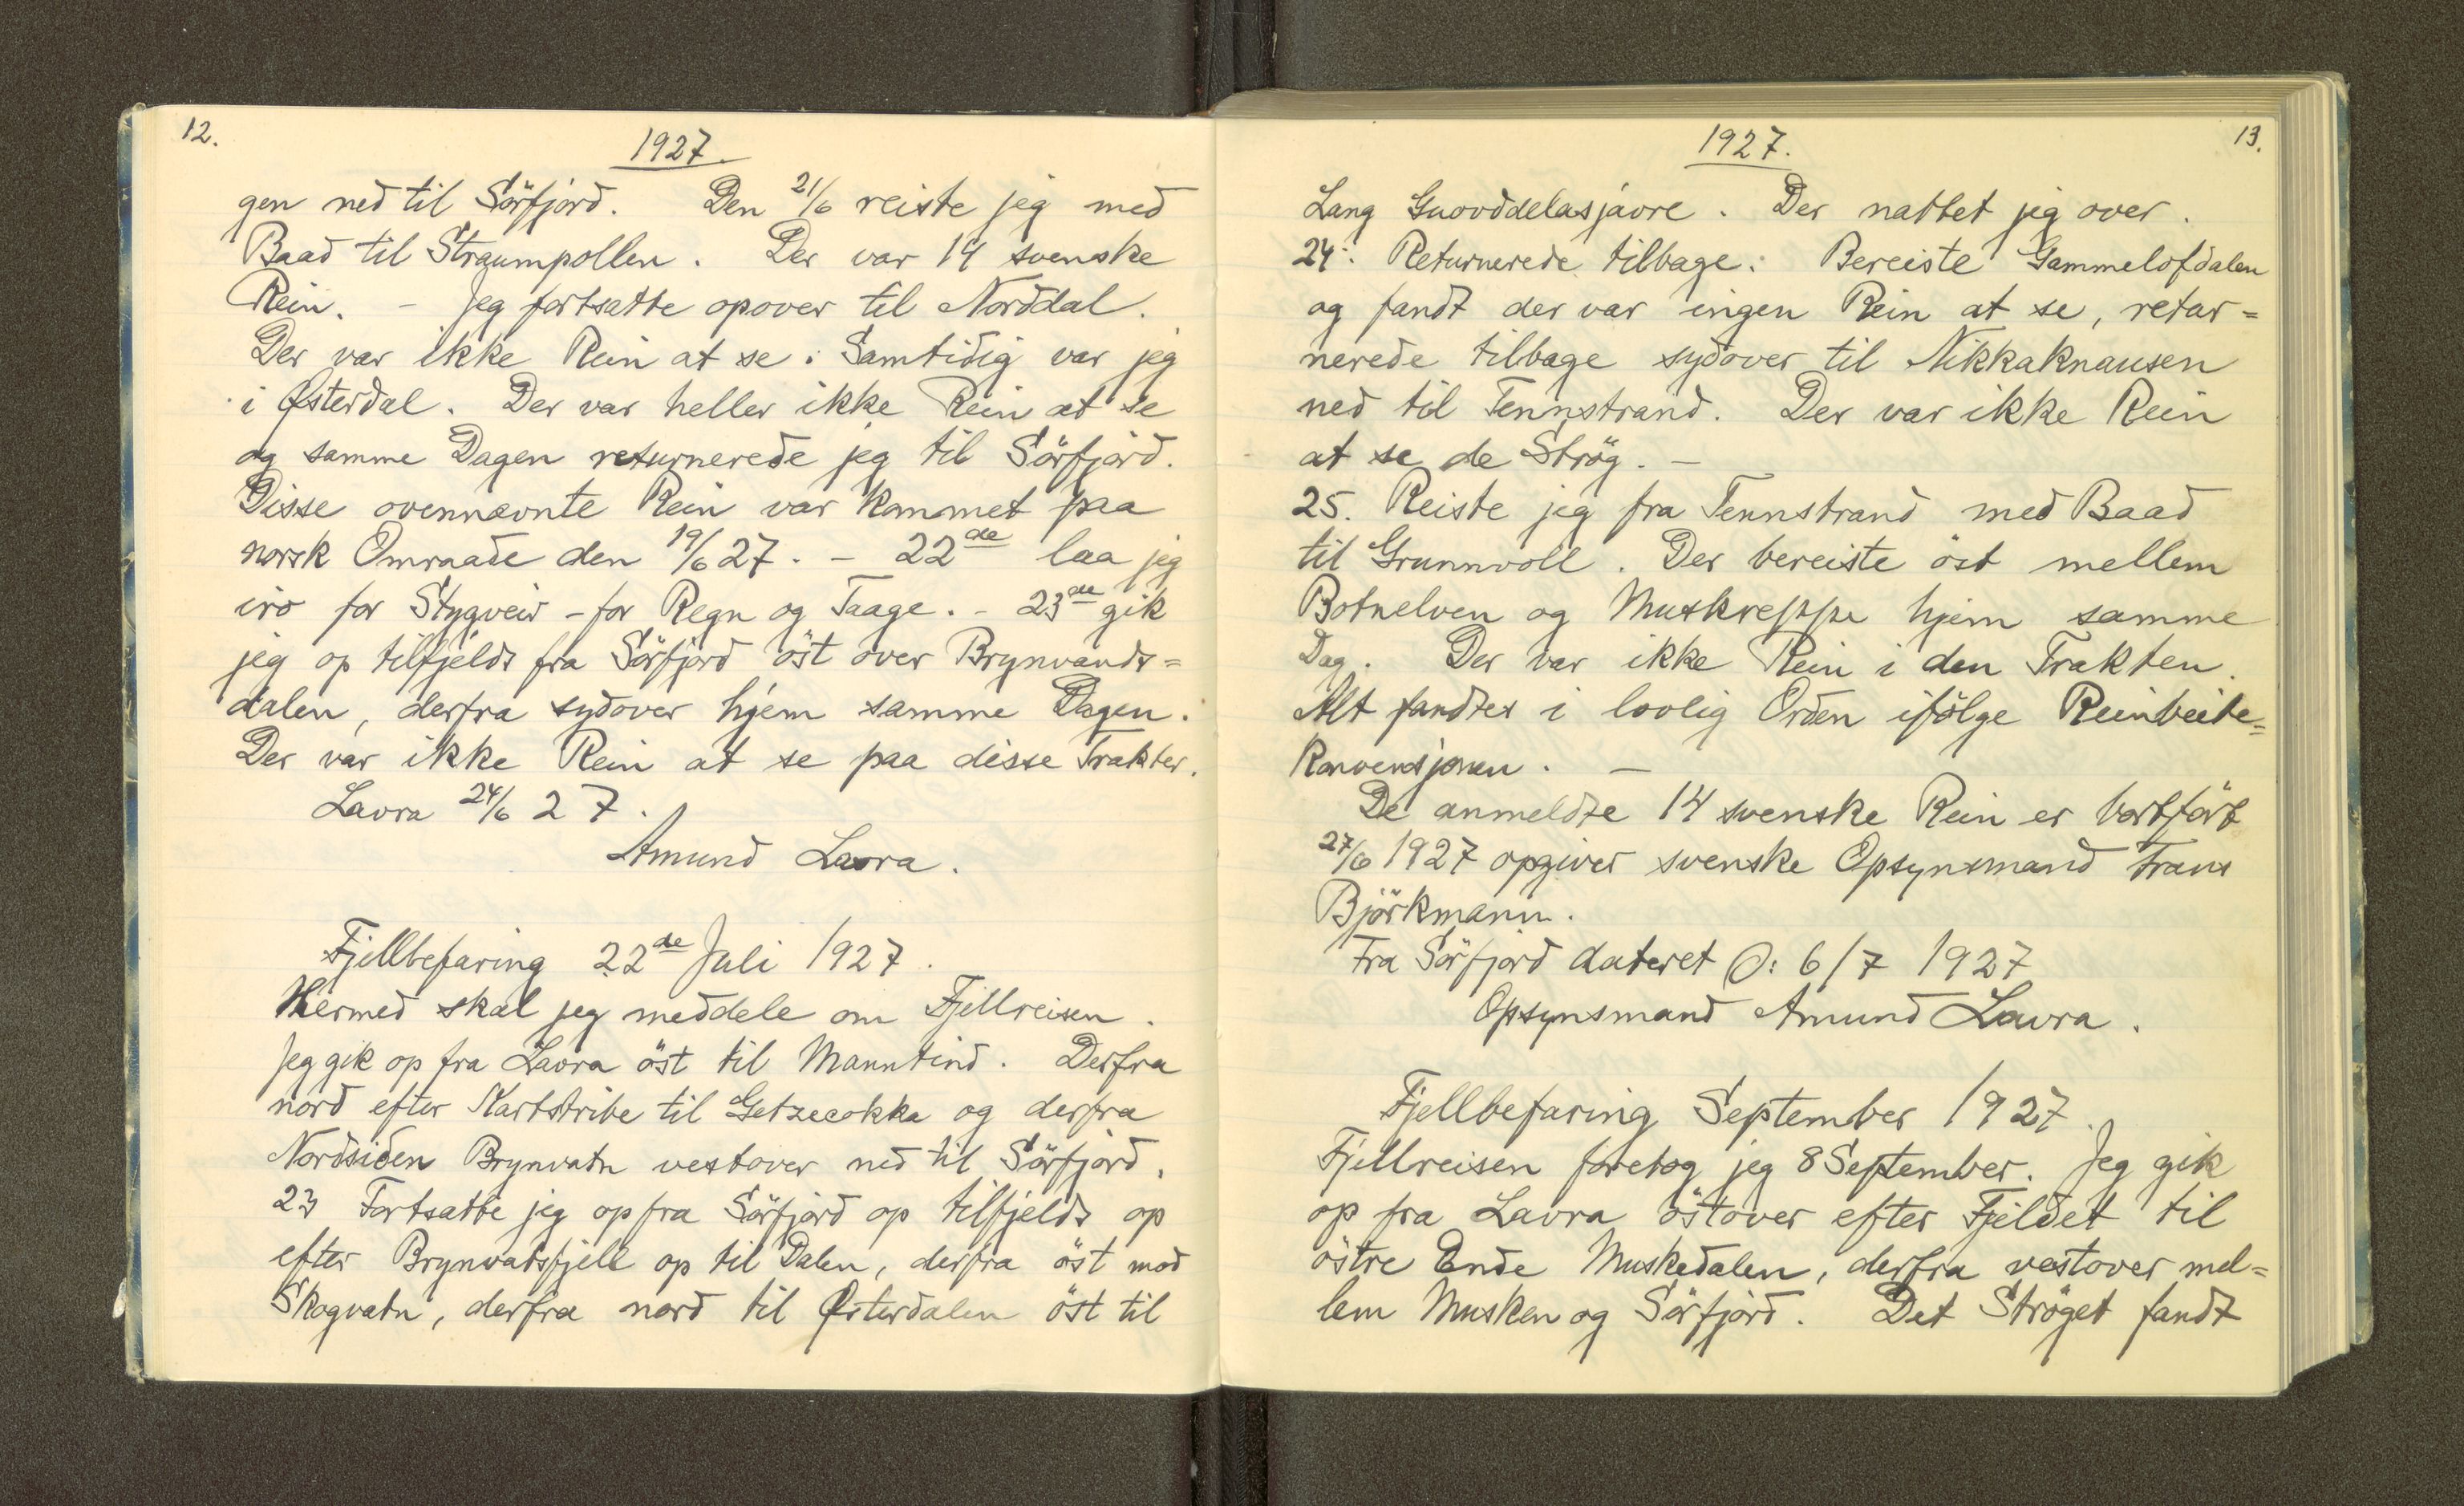 12.
1927.
gen ned til Sörfjord. Den 21/6 reiste jeg med
Baad til Straumpollen. Der var 14 svenske
Rein. – Jeg fortsatte opover til Norddal.
Der var ikke Rein at se. Samtidig var jeg
i Østerdal. Der var heller ikke Rein at se
og samme Dagen returnerede jeg til Sörfjord.
Disse ovennævnte Rein var kommet paa
norsk Omraade den 19/6 27. – 22de laa jeg
iro for Stygveir – for Regn og Taage. – 23de gik
jeg op tilfjelds fra Sörfjord öst over Brynvands=
dalen, derfra sydover hjem samme Dagen.
Der var ikke Rein at se paa disse Trakter.
Lavra 24/6 27.
Amund Lavra.
Fjellbefaring 22de Juli 1927.
Hermed skal jeg meddele om Fjellreisen.
Jeg gik op fra Lavra öst til Manntind. Derfra
nord efter Kartstribe til Getzecokka og derfra
Nordsiden Brynvatn vestover ned til Sörfjord.
23 Fortsatte jeg op fra Sörfjord op tilfjelds op
efter Brynvatsfjell op til Dalen, derfra öst mod
Skogvatn, derfra nord til Østerdalen öst til
1927.
13.
Lang Guovddelasjavre. Der nattet jeg over.
24. Returnerede tilbage. Bereiste Gammelofdalen
og fandt der var ingen Rein at se, retur=
nerede tilbage sydover til Nikkaknausen
ned til Tennstrand. Der var ikke Rein
at se de Strög. –
25. Reiste jeg fra Tennstrand med Baad
til Grunnvoll. Der bereiste öst mellem
Botnelven og Muskreppe hjem samme
Dag. Der var ikke Rein i den Trakten.
Alt fandtes i lovlig Orden ifölge Reinbeite=
Konvensjonen. –
De anmeldte 14 svenske Rein er bortfört
27/6 1927 opgiver svenske Opsynsmand Frans
Björkmann.
Fra Sörfjord dateret O: 6/7 1927
Opsynsmand Amund Lavra.
Fjellbefaring September 1927.
Fjellreisen foretog jeg 8 September. Jeg gik
op fra Lavra östover efter Fjeldet til
östre Ende Muskedalen, derfra vestover mel=
lem Musken og Sörfjord. Det Ströget fandt